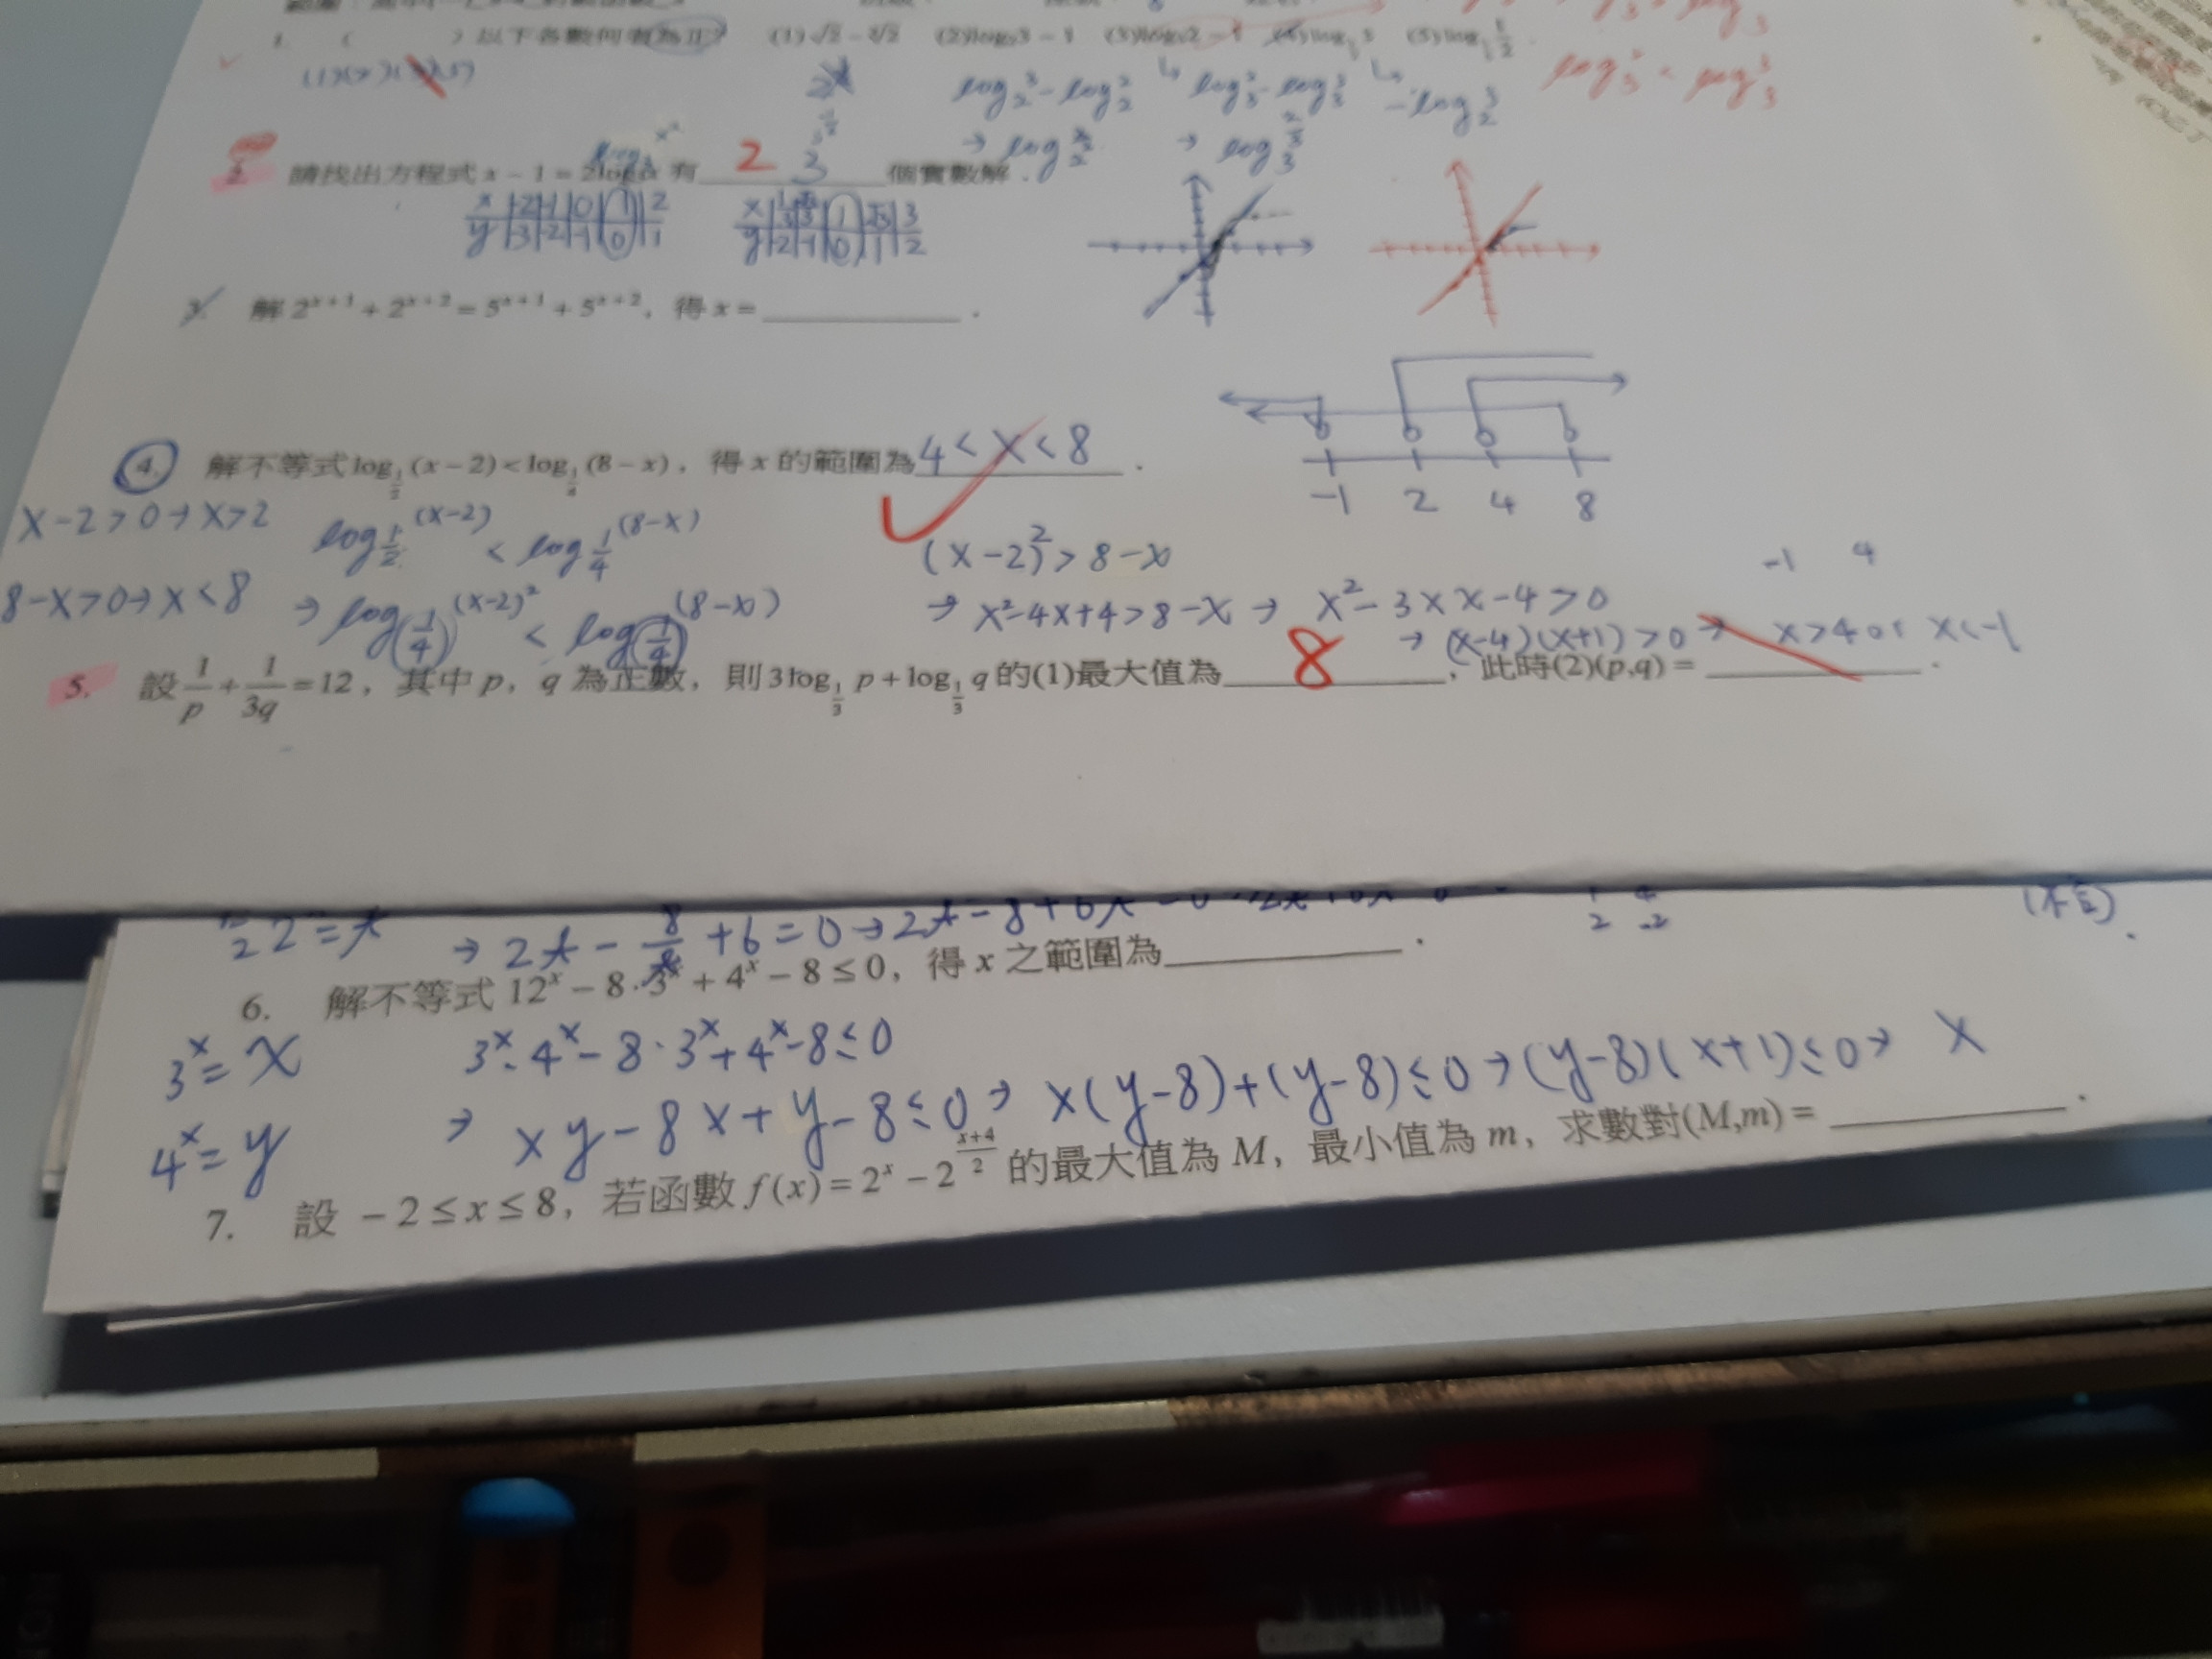 1. ( ) 以下各數何者為正? (1)√2 - ∛2 (2)log₂3 - 1 (3)log₃2 - 1 (5)log
(1)(2)
log₂3 - log₂2 log₃2 - log₃3 - log₂3
→ log₂3/2 → log₃2/3
請找出方程式 x - 1 = 2log₃x 有 2 個實數解.
x -2 -1 0 1 2
y -3 -2 -1 0 1
x 1/3 √3/3 1 √3 3
y -2 -1 0 1 2
3. 解 2ˣ⁺¹ + 2ˣ⁺² = 5ˣ⁺¹ + 5ˣ⁺², 得 x = .
-1 2 4 8
4. 解不等式 log_{1/2} (x - 2) < log_{1/4} (8 - x), 得 x 的範圍為 4 < x < 8 .
x - 2 > 0 → x > 2 log_{1/2} (x-2) < log_{1/4} (8-x) (x-2)² > 8-x
-1 4
8-x > 0 → x < 8 → log_{(1/4)} (x-2)² < log_{(1/4)} (8-x) → x²-4x+4 > 8-x → x² - 3x x - 4 > 0
→ (x-4)(x+1) > 0 → x > 4 or x < -1
5. 設 1/p + 1/3q = 12, 其中 p, q 為正數, 則 3log_{1/3} p + log_{1/3} q 的(1)最大值為 8 , 此時(2)(p,q) = .
→ 2t - 8/t + 6 = 0 →
6. 解不等式 12ˣ - 8·3ˣ + 4ˣ - 8 ≤ 0, 得 x 之範圍為 .
3ˣ = x 3ˣ·4ˣ - 8·3ˣ + 4ˣ - 8 ≤ 0
4ˣ = y → xy - 8x + y - 8 ≤ 0 → x(y-8) + (y-8) ≤ 0 → (y-8)(x+1) ≤ 0 → x
7. 設 -2 ≤ x ≤ 8, 若函數 f(x) = 2ˣ - 2^{(x+4)/2} 的最大值為 M, 最小值為 m, 求數對(M,m) = .